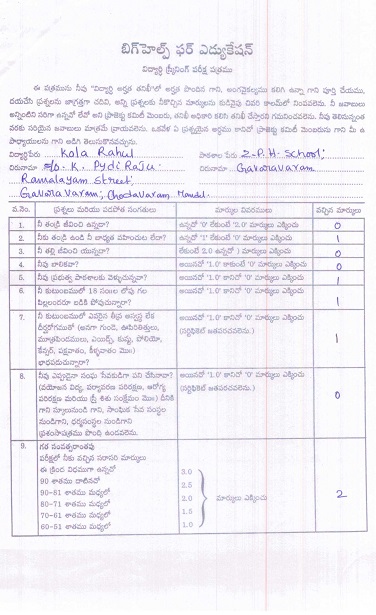 బిగ్‌హెల్ప్ ఫర్ ఎడ్యుకేషన్
విద్యార్థి స్క్రీనింగ్ పరీక్ష పత్రము
ఈ పత్రమును నీవు "విద్యార్థి అర్హత తనిఖీ"లో అర్హత పొందిన గాని, అంగవైకల్యము కలిగి ఉన్నా గాని పూర్తి చేయుము,
దయచేసి ప్రశ్నలను జాగ్రత్తగా చదివి, అన్ని ప్రశ్నలకు నీకిచ్చిన మార్కులను కుడివైపు చివరి కాలమ్‌లో నింపవలెను. నీ జవాబులు
అన్నింటిని సరిగా ఉన్నవో లేవో అని ప్రాజెక్టు కమిటీ మెంబరు, తనిఖీ అధికారి కలిసి తనిఖీ చేస్తారని గమనించవలెను. నీవు తెలిసినంత
వరకు సరియైన జవాబులు మాత్రమే వ్రాయవలెను. ఒకవేళ ఏ ప్రశ్నయైన అర్థము కానిచో ప్రాజెక్టు కమిటీ మెంబరును గాని మీ ఉ
పాధ్యాయులను గాని అడిగి తెలుసుకొనవచ్చును.
విద్యార్థిపేరు Kola Rahul పాఠశాల పేరు Z.P.H. School;
చిరునామా S/o. K. Pydi Raju. చిరునామా Gavaravaram
Ramalayam Street;
Gavaravaram, Chodavaram Mandal.
వ.నెం. ప్రశ్నలు మరియు పరపోత సంగతులు మార్కుల వివరములు వచ్చిన మార్కులు
1. నీ తండ్రి జీవించి ఉన్నడా? ఉన్నచో '0' లేకుంటే "2.0" మార్కులు ఎక్కించు 0
2. నీకు తండ్రి ఉండి నీ బాధ్యత వహించుట లేదా? ఉన్నచో "1" లేకుంటే '0' మార్కులు ఎక్కించు 1
3. నీ తల్లి జీవించి యున్నదా? లేకుంటే 2.0 ఉన్నచో 1 మార్కులు ఎక్కించు 1
4. నీవు బాలికవా? అయినచో '1.0' కాకుంటే '0' మార్కులు ఎక్కించు 0
5. నీవు ప్రభుత్వ పాఠశాలకు వెళ్ళుచున్నావా? అయినచో '1.0' కానిచో '0' మార్కులు ఎక్కించు 1
6. నీ కుటుంబములో 18 సంఃల లోపు గల అయినచో '1.0' కానిచో '0' మార్కులు ఎక్కించు 1
పిల్లలందరూ బడికి పోవుచున్నారా?
7. నీ కుటుంబములో ఎవరైన తీవ్ర అస్వస్థ లేక అయినచో '1.0' కానిచో '0' మార్కులు ఎక్కించు 1
దీర్ఘరోగముతో (అనగా గుండె, ఊపిరితిత్తులు, (సర్టిఫికెట్ జతపరచవలెను.)
మూత్రపిండములు, ఎయిడ్స్, కుష్ఠు, పోలియో,
కేన్సర్, పక్షవాతం, కీళ్ళవాతం మొ॥)
బాధపడుచున్నారా?
8. నీవు ఎప్పుడైనా సంఘ సేవకుడిగా పని చేసినావా? అయినచో '1.0' కానిచో '0' మార్కులు ఎక్కించు 0
(వయోజన విద్య, పర్యావరణ పరిరక్షణ, ఆరోగ్య (సర్టిఫికెట్ జతపరచవలెను.)
పరిరక్షణ మరియు స్త్రీ శిశు సంక్షేమం మొ॥) దీనికి
గాని స్కూలునుండి గాని, సాంఘిక సేవ సంస్థల
నుండిగాని, ధర్మసంస్థల నుండిగాని
ప్రశంసాపత్రము పొంది ఉండవలెను.
9. గత సంవత్సరాంతపు
పరీక్షలో నీకు వచ్చిన సరాసరి మార్కులు
ఈ క్రింద విధముగా ఉన్నచో
90 శాతము దాటినచో 3.0
90-81 శాతము మధ్యలో 2.5
80-71 శాతము మధ్యలో 2.0 మార్కులు ఎక్కించు 2
70-61 శాతము మధ్యలో 1.5
60-51 శాతము మధ్యలో 1.0